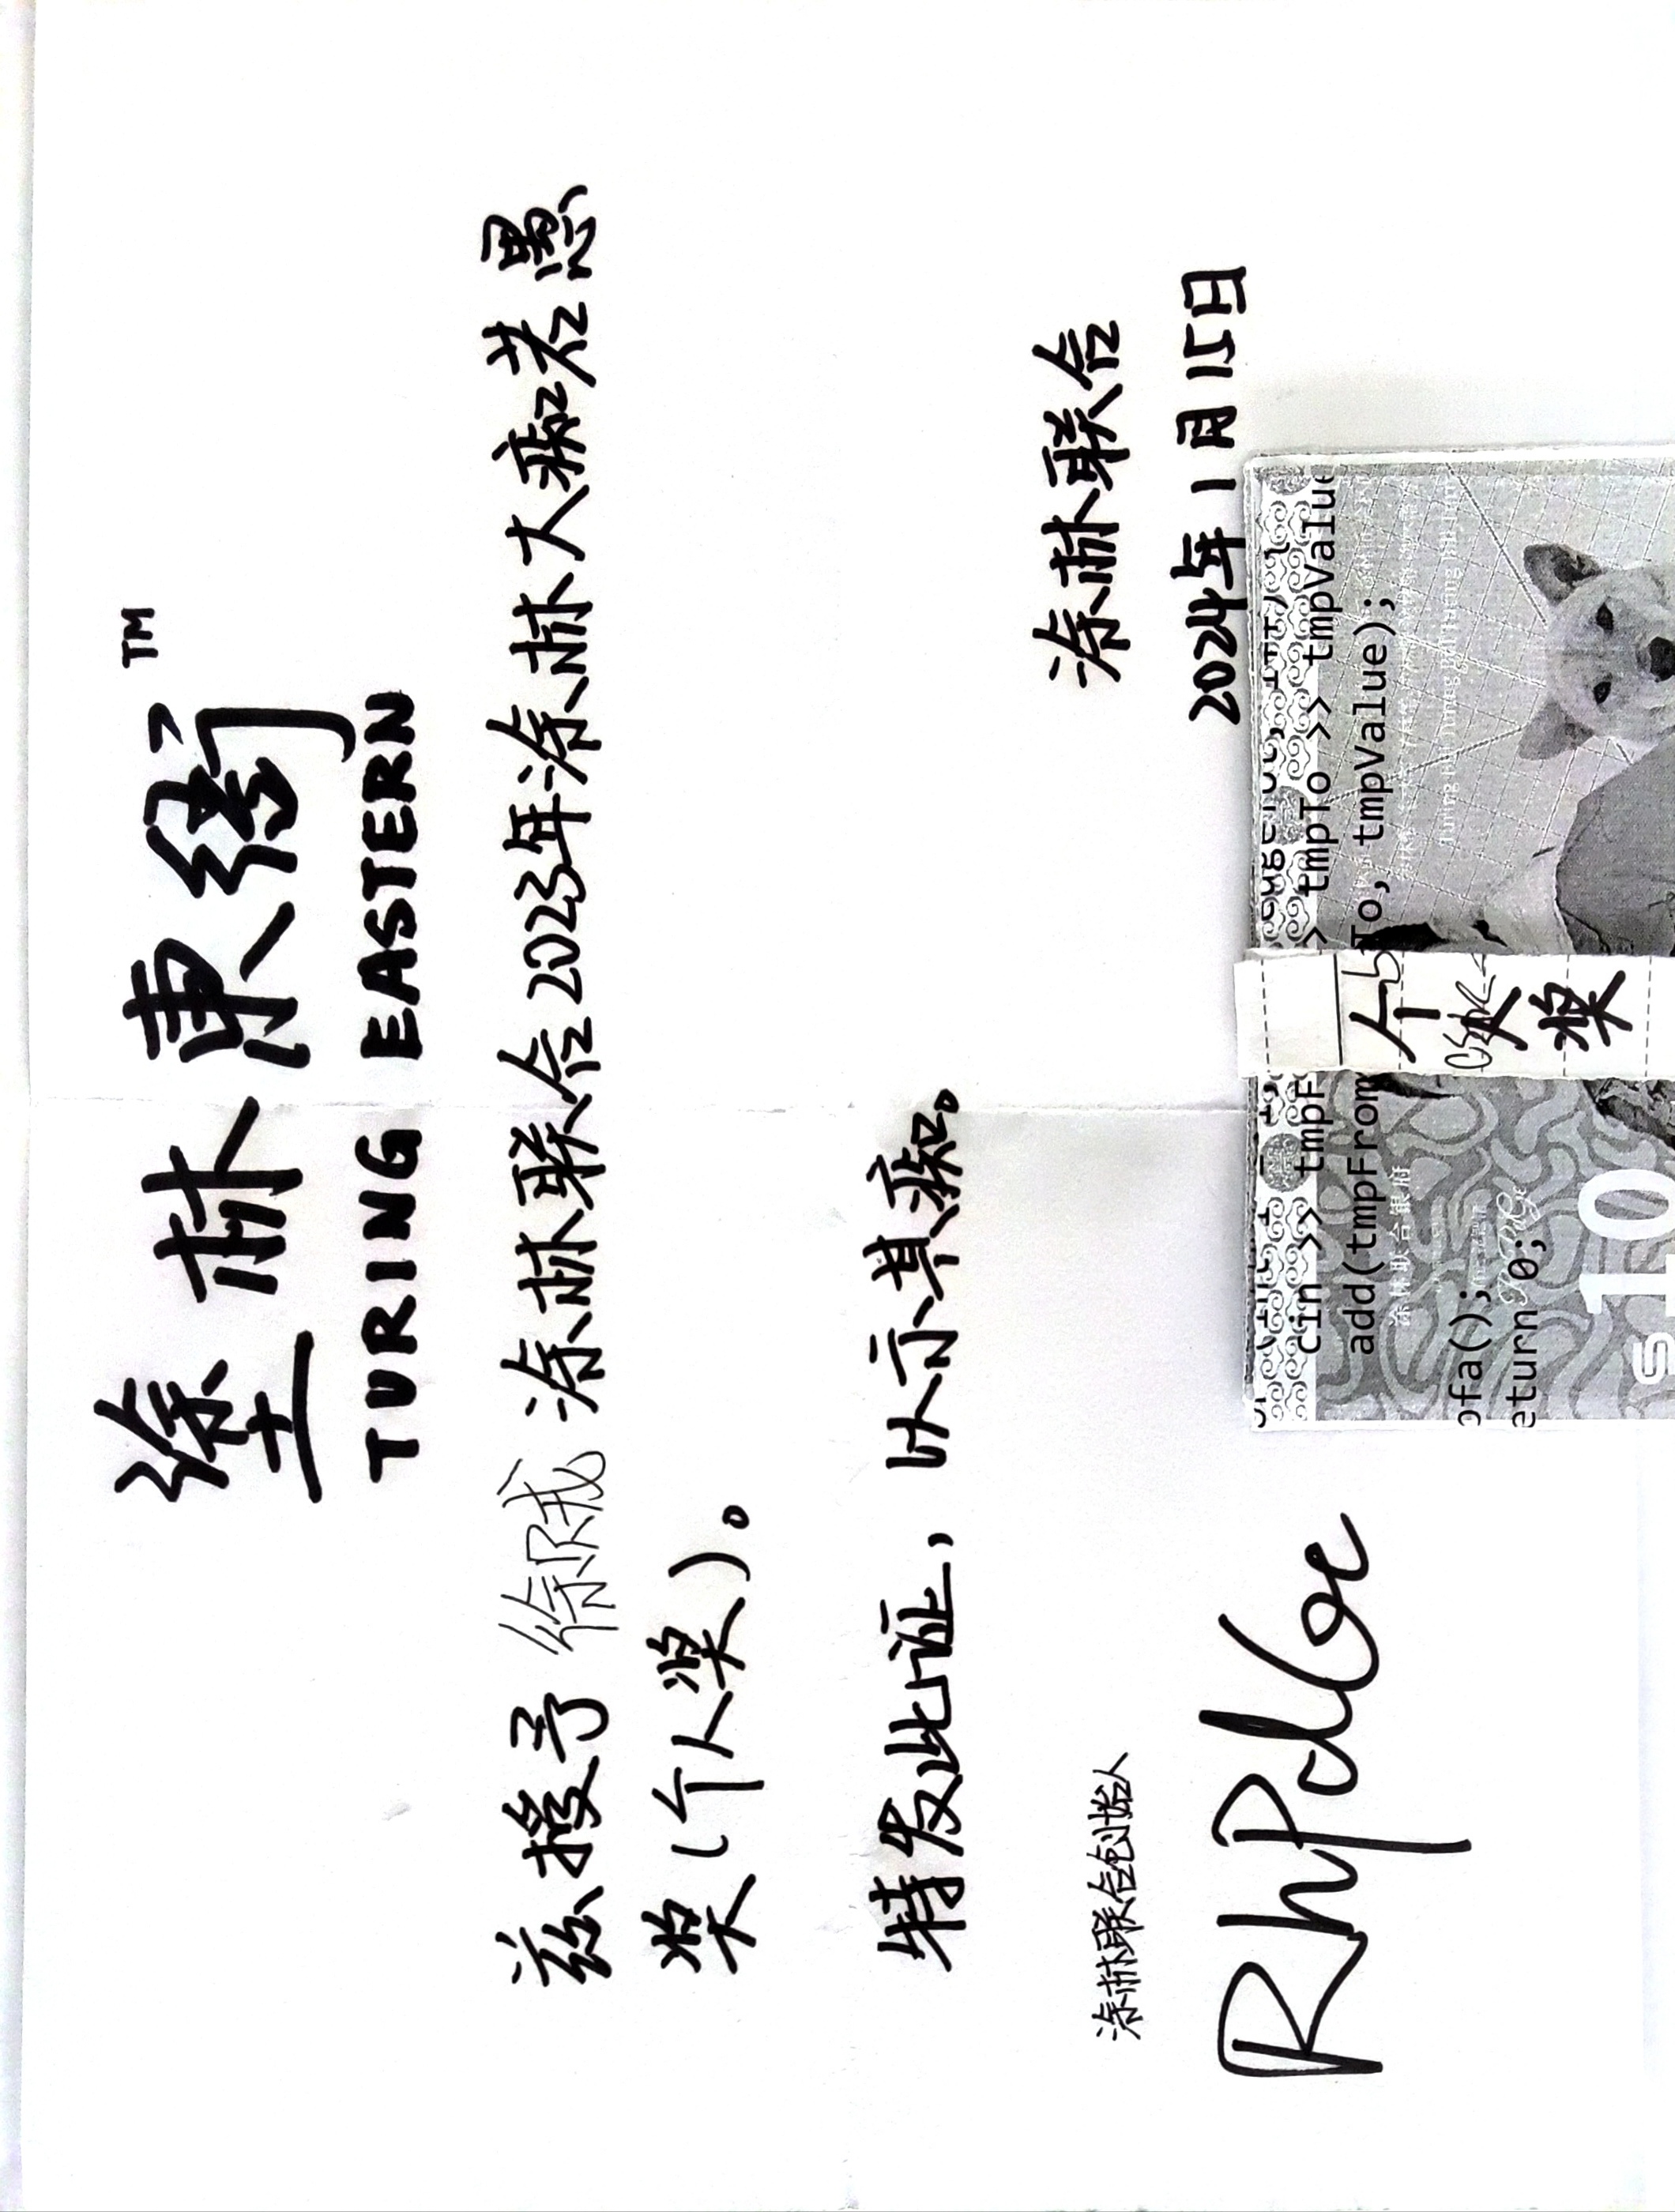 塗林東 TM
TURING EASTERN
兹授予 涂林联合2023年涂林大痴若愚
奖(个人奖)。
特发此证,以示其痴。
涂林联合创始人
RhPdGe
涂林联合
2024年1月15日
cin >> tmpF > tmpTo >> tmpValue
add(tmpFrom To, tmpValue);
pfa();
eturn 0;
涂林联合银府
10
个人奖